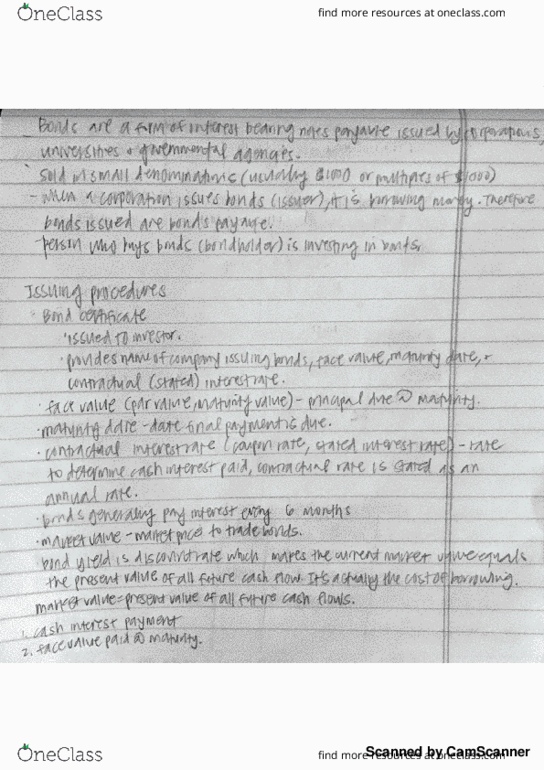 OneClass
find more resources at oneclass.com
- Bonds are a form of interest bearing notes payable issued by corporations,
universities + governmental agencies.
- sold in small denominations (usually $1000 or multiples of $1000)
- when a corporation issues bonds (issuer), it is borrowing money. Therefore
bonds issued are bonds payable.
- person who buys bonds (bondholder) is investing in bonds.
Issuing procedures
· Bond certificate
· issued to investor.
· provides name of company issuing bonds, face value, maturity date, +
contractual (stated) interest rate.
· face value (par value, maturity value) - principal due @ maturity.
· maturity date - date final payment is due.
· contractual interest rate (coupon rate, stated interest rate) - rate
to determine cash interest paid, contractual rate is stated as an
annual rate.
· bonds generally pay interest every 6 months
· market value - market price to trade bonds.
bond yield is discount rate which makes the current market value equals
the present value of all future cash flow. It's actually the cost of borrowing.
market value = present value of all future cash flows.
1. cash interest payment
2. face value paid @ maturity.
OneClass
find more resources at oneclass.com
Scanned by CamScanner